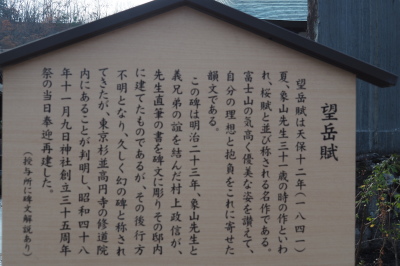 望岳賦
望岳賦は天保十二年（一八四一）
夏、象山先生三十一歳の時の作といわ
れ、桜賦と並び称される名作である。
富士山の気高く優美な姿を讃えて、
自分の理想と抱負をこれに寄せた
韻文である。
この碑は明治二十三年、象山先生と
義兄弟の誼を結んだ村上政信が、
先生直筆の書を碑文に彫りその邸内
に建てたものであるが、その後行方
不明となり、久しく幻の碑と称され
てきたが、東京杉並高円寺の修道院
内にあることが判明し、昭和四十八
年十一月九日神社創立三十五周年
祭の当日奉迎再建した。
（授与所に碑文解説あり）